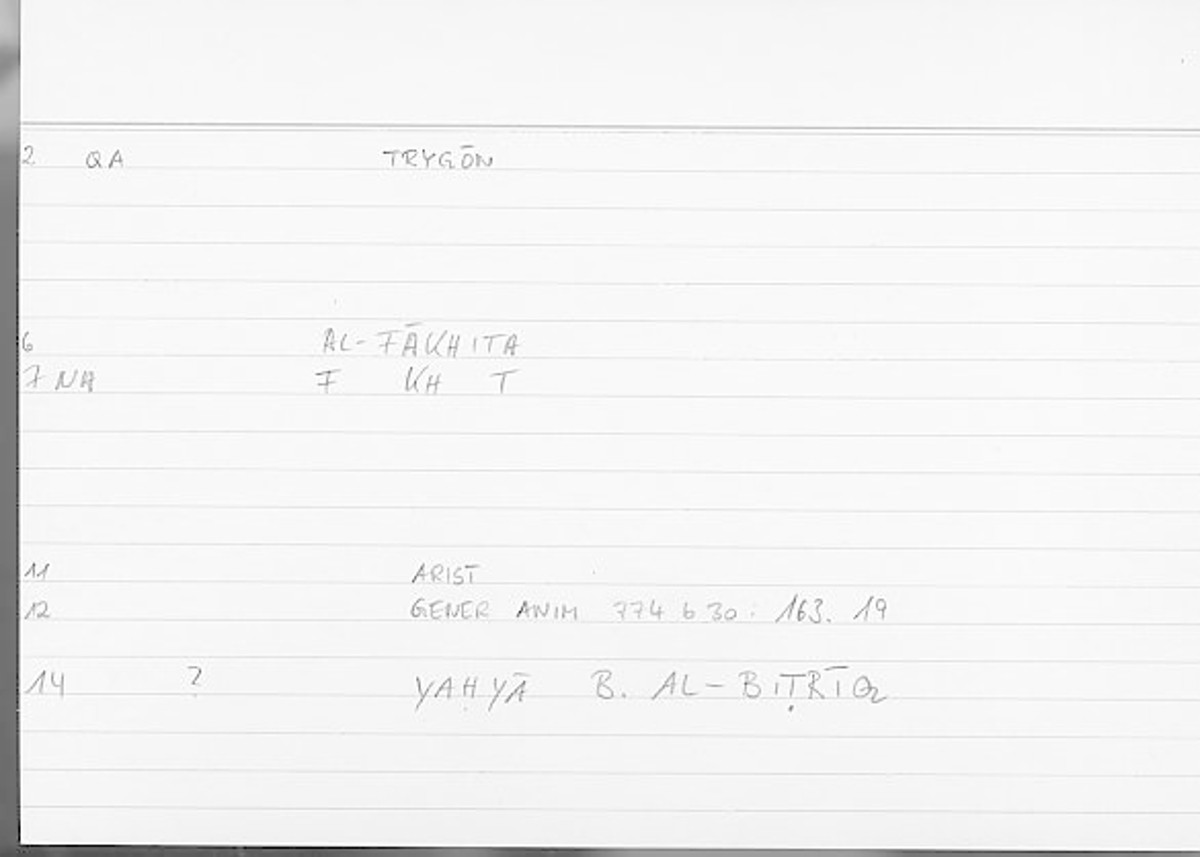 2 QA TRYGŌN
6 AL-FĀKHITA
7 NA F KH T
11 ARIST
12 GENER ANIM 774 b 30 : 163. 19
14 ? YAḤYĀ B. AL-BIṬRĪQ